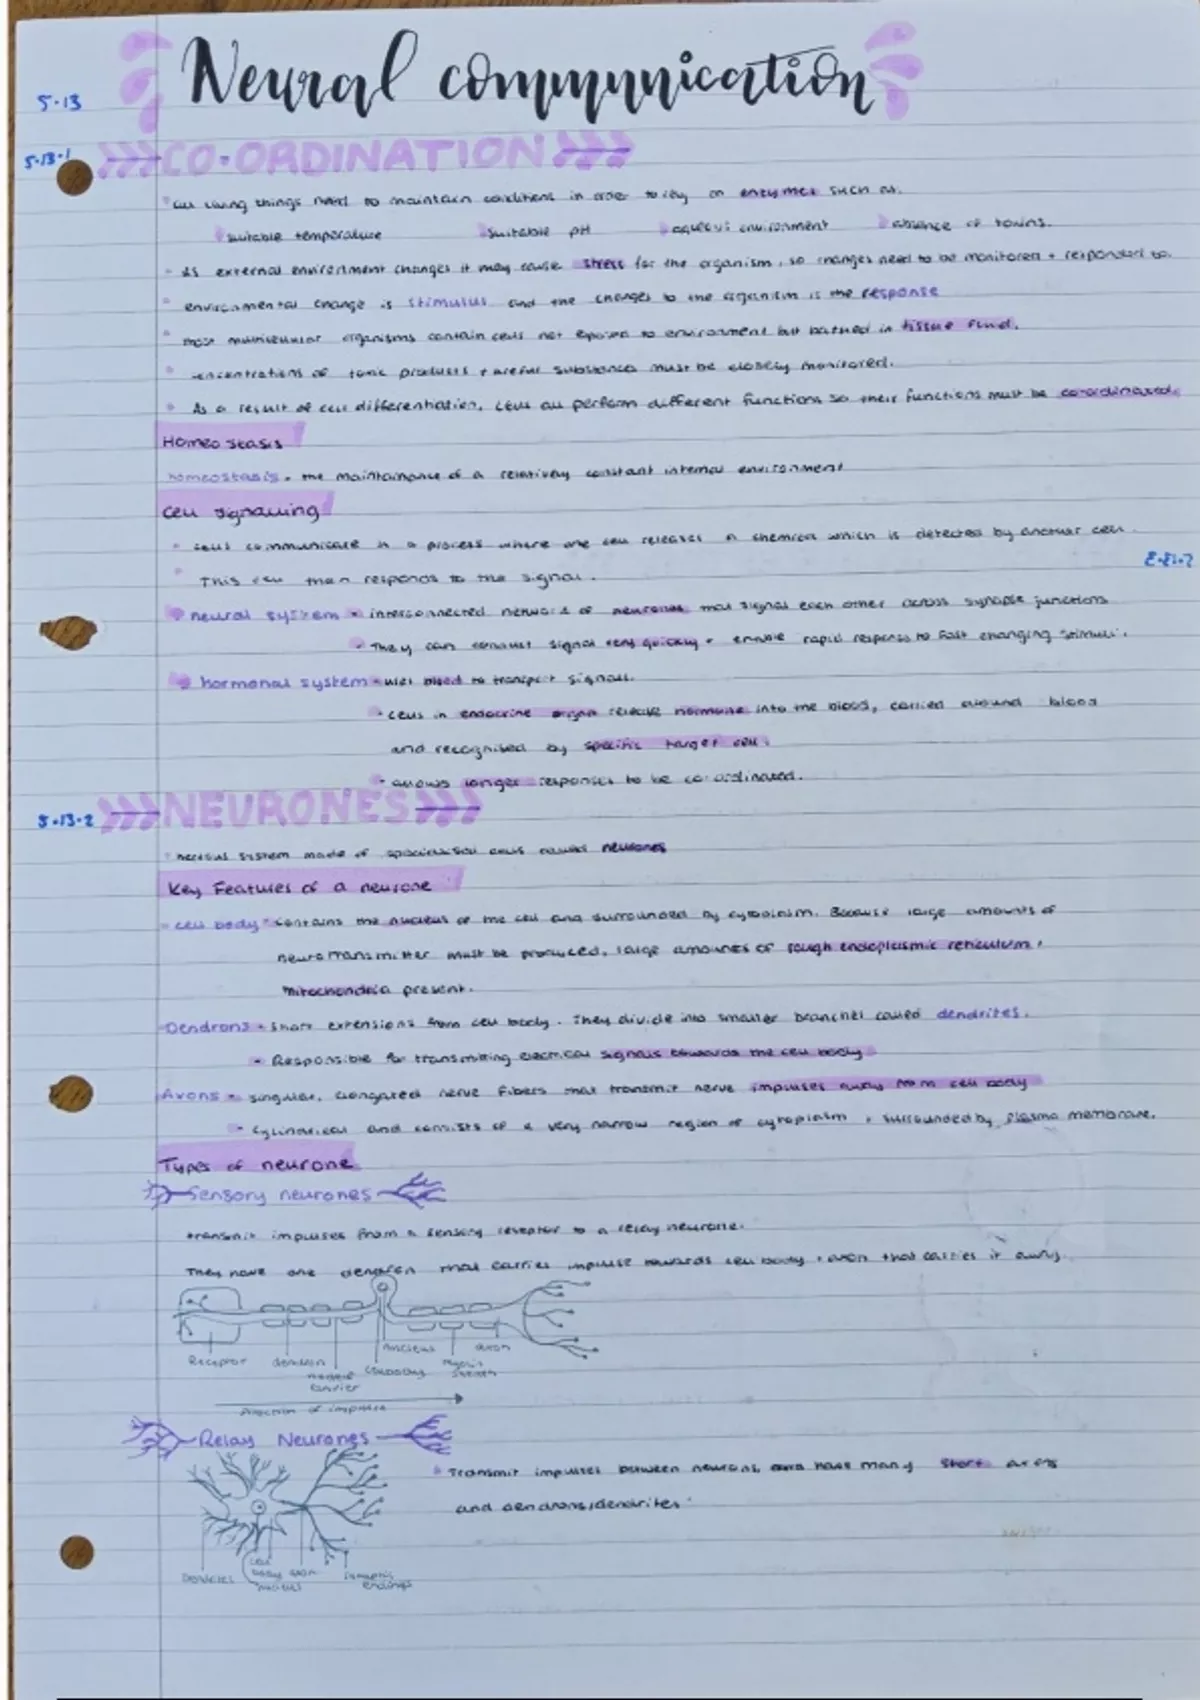 Neural communication
5.13
5.13.1
CO-ORDINATION
all living things need to maintain conditions in order to rely on enzymes such as:
suitable temperature suitable pH aqueous environment absence of toxins.
as external environment changes it may cause stress for the organism, so changes need to be monitored + responded to.
environmental change is stimulus and the changes to the organism is the response
most multicellular organisms contain cells not exposed to environment but bathed in tissue fluid.
concentrations of toxic products + useful substances must be closely monitored.
As a result of cell differentiation, cells all perform different functions so their functions must be co-ordinated.
Homeostasis
homeostasis - the maintainance of a relatively constant internal environment
Cell signalling
cells communicate in a process where one cell releases a chemical which is detected by another cell.
This cell then responds to the signal.
neural system - interconnected network of neurones that signal each other across synapse junctions
They can conduct signal very quickly + enable rapid response to fast changing stimuli.
hormonal system - uses blood to transport signals.
cells in endocrine organ release hormone into the blood, carried around blood
and recognised by specific target cell.
allows longer responses to be co-ordinated.
5.13.2
NEURONES
nervous system made of specialised cells called neurones
Key Features of a neurone
cell body - contains the nucleus of the cell and surrounded by cytoplasm. Because large amounts of
neurotransmitter must be produced, large amounts of rough endoplasmic reticulum,
mitochondria present.
Dendrons - short extensions from cell body. They divide into smaller branches called dendrites.
Responsible for transmitting electrical signals towards the cell body
Axons - singular, elongated nerve fibers that transmit nerve impulses away from cell body
cylindrical and consists of a very narrow region of cytoplasm + surrounded by plasma membrane.
Types of neurone
Sensory neurones
transmit impulses from a sensory receptor to a relay neurone.
They have one dendron that carries impulse towards cell body + axon that carries it away.
Receptor dendron nucleus axon
cell body myelin sheath
Direction of impulse
Relay Neurones
Transmit impulses between neurons, and have many short axons
and dendrons/dendrites
Dendrites cell body axon synaptic endings
nucleus